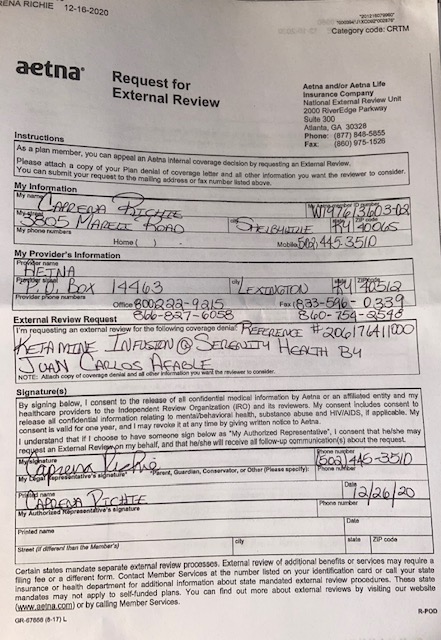 RENA RICHIE 12-16-2020
Category code: CRTM
aetna®
Request for
External Review
Aetna and/or Aetna Life
Insurance Company
National External Review Unit
2000 RiverEdge Parkway
Suite 300
Atlanta, GA 30328
Phone: (877) 848-5855
Fax: (860) 975-1526
Instructions
As a plan member, you can appeal an Aetna internal coverage decision by requesting an External Review.
Please attach a copy of your Plan denial of coverage letter and all other information you want the reviewer to consider.
You can submit your request to the mailing address or fax number listed above.
My Information
My name
CAPRENA RICHIE
W197613603-02
3805 MARELI ROAD
city SHELBYVILLE KY ZIP code 40065
My phone numbers
Home ( ) Mobile (502) 445-3510
My Provider's Information
Provider name
AETNA
P.O. BOX 14463 city LEXINGTON KY 40512
Provider phone numbers
Office 800 222-9215 Fax (833-596-0339
866-827-6058 860-754-2548
External Review Request
I'm requesting an external review for the following coverage denial: REFERENCE #206176411000
KETAMINE INFUSION @ SERENITY HEALTH BY
JUAN CARLOS AFABLE
NOTE: Attach copy of coverage denial and all other information you want the reviewer to consider.
Signature(s)
By signing below, I consent to the release of all confidential medical information by Aetna or an affiliated entity and my
healthcare providers to the Independent Review Organization (IRO) and its reviewers. My consent includes consent to
release all confidential information relating to mental/behavioral health, substance abuse and HIV/AIDS, if applicable. My
consent is valid for one year, and I may revoke it at any time by giving written notice to Aetna.
I understand that if I choose to have someone sign below as "My Authorized Representative", I consent that he/she may
request an External Review on my behalf, and that he/she will receive all follow-up communication(s) about the request.
My signature Phone number
Caprena Richie (502) 445-3510
My Legal Representative's signature Parent, Guardian, Conservator, or Other (Please specify): Phone number
Printed name Date
CAPRENA RICHIE 12/26/20
My Authorized Representative's signature Phone number
Date
Printed name
Street (if different than the Member's) city state ZIP code
Certain states mandate separate external review processes. External review of additional benefits or services may require a
filing fee or a different form. Contact Member Services at the number listed on your identification card or call your state
insurance or health department for additional information about state mandated external review procedures. These state
mandates may not apply to self-funded plans. You can find out more about external reviews by visiting our website
(www.aetna.com) or by calling Member Services.
GR-67688 (8-17) L R-POD